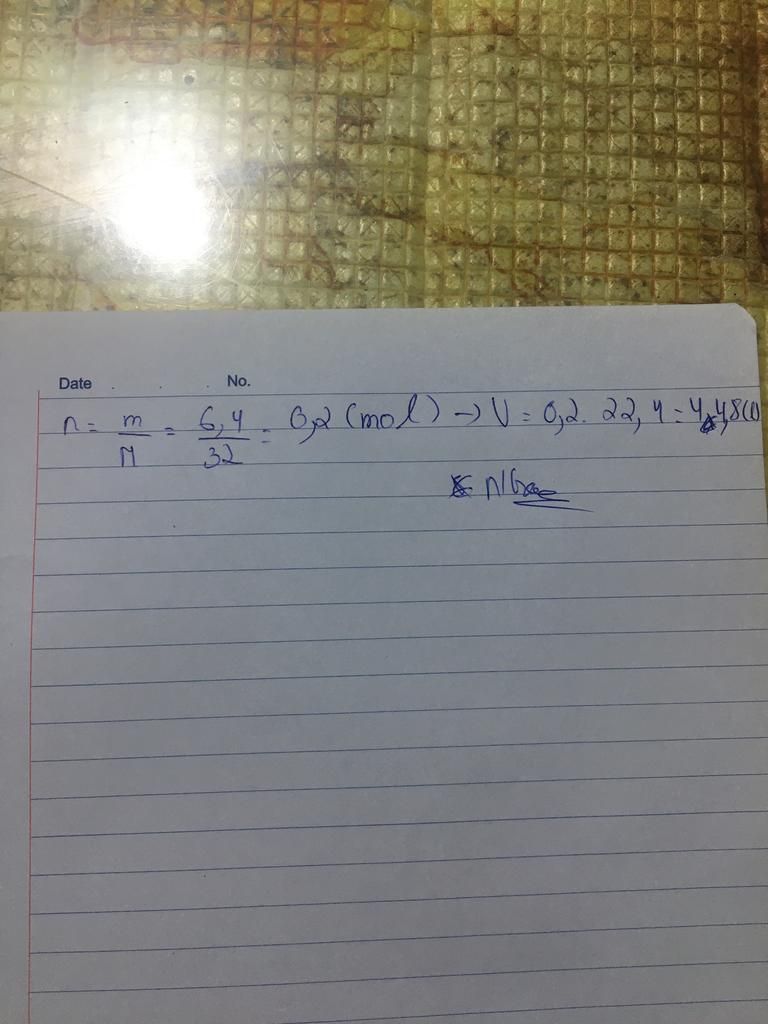 Date . . . No.
n = m/M = 6,4/32 = 0,2 (mol) → V = 0,2. 22,4 = 4,48(l)